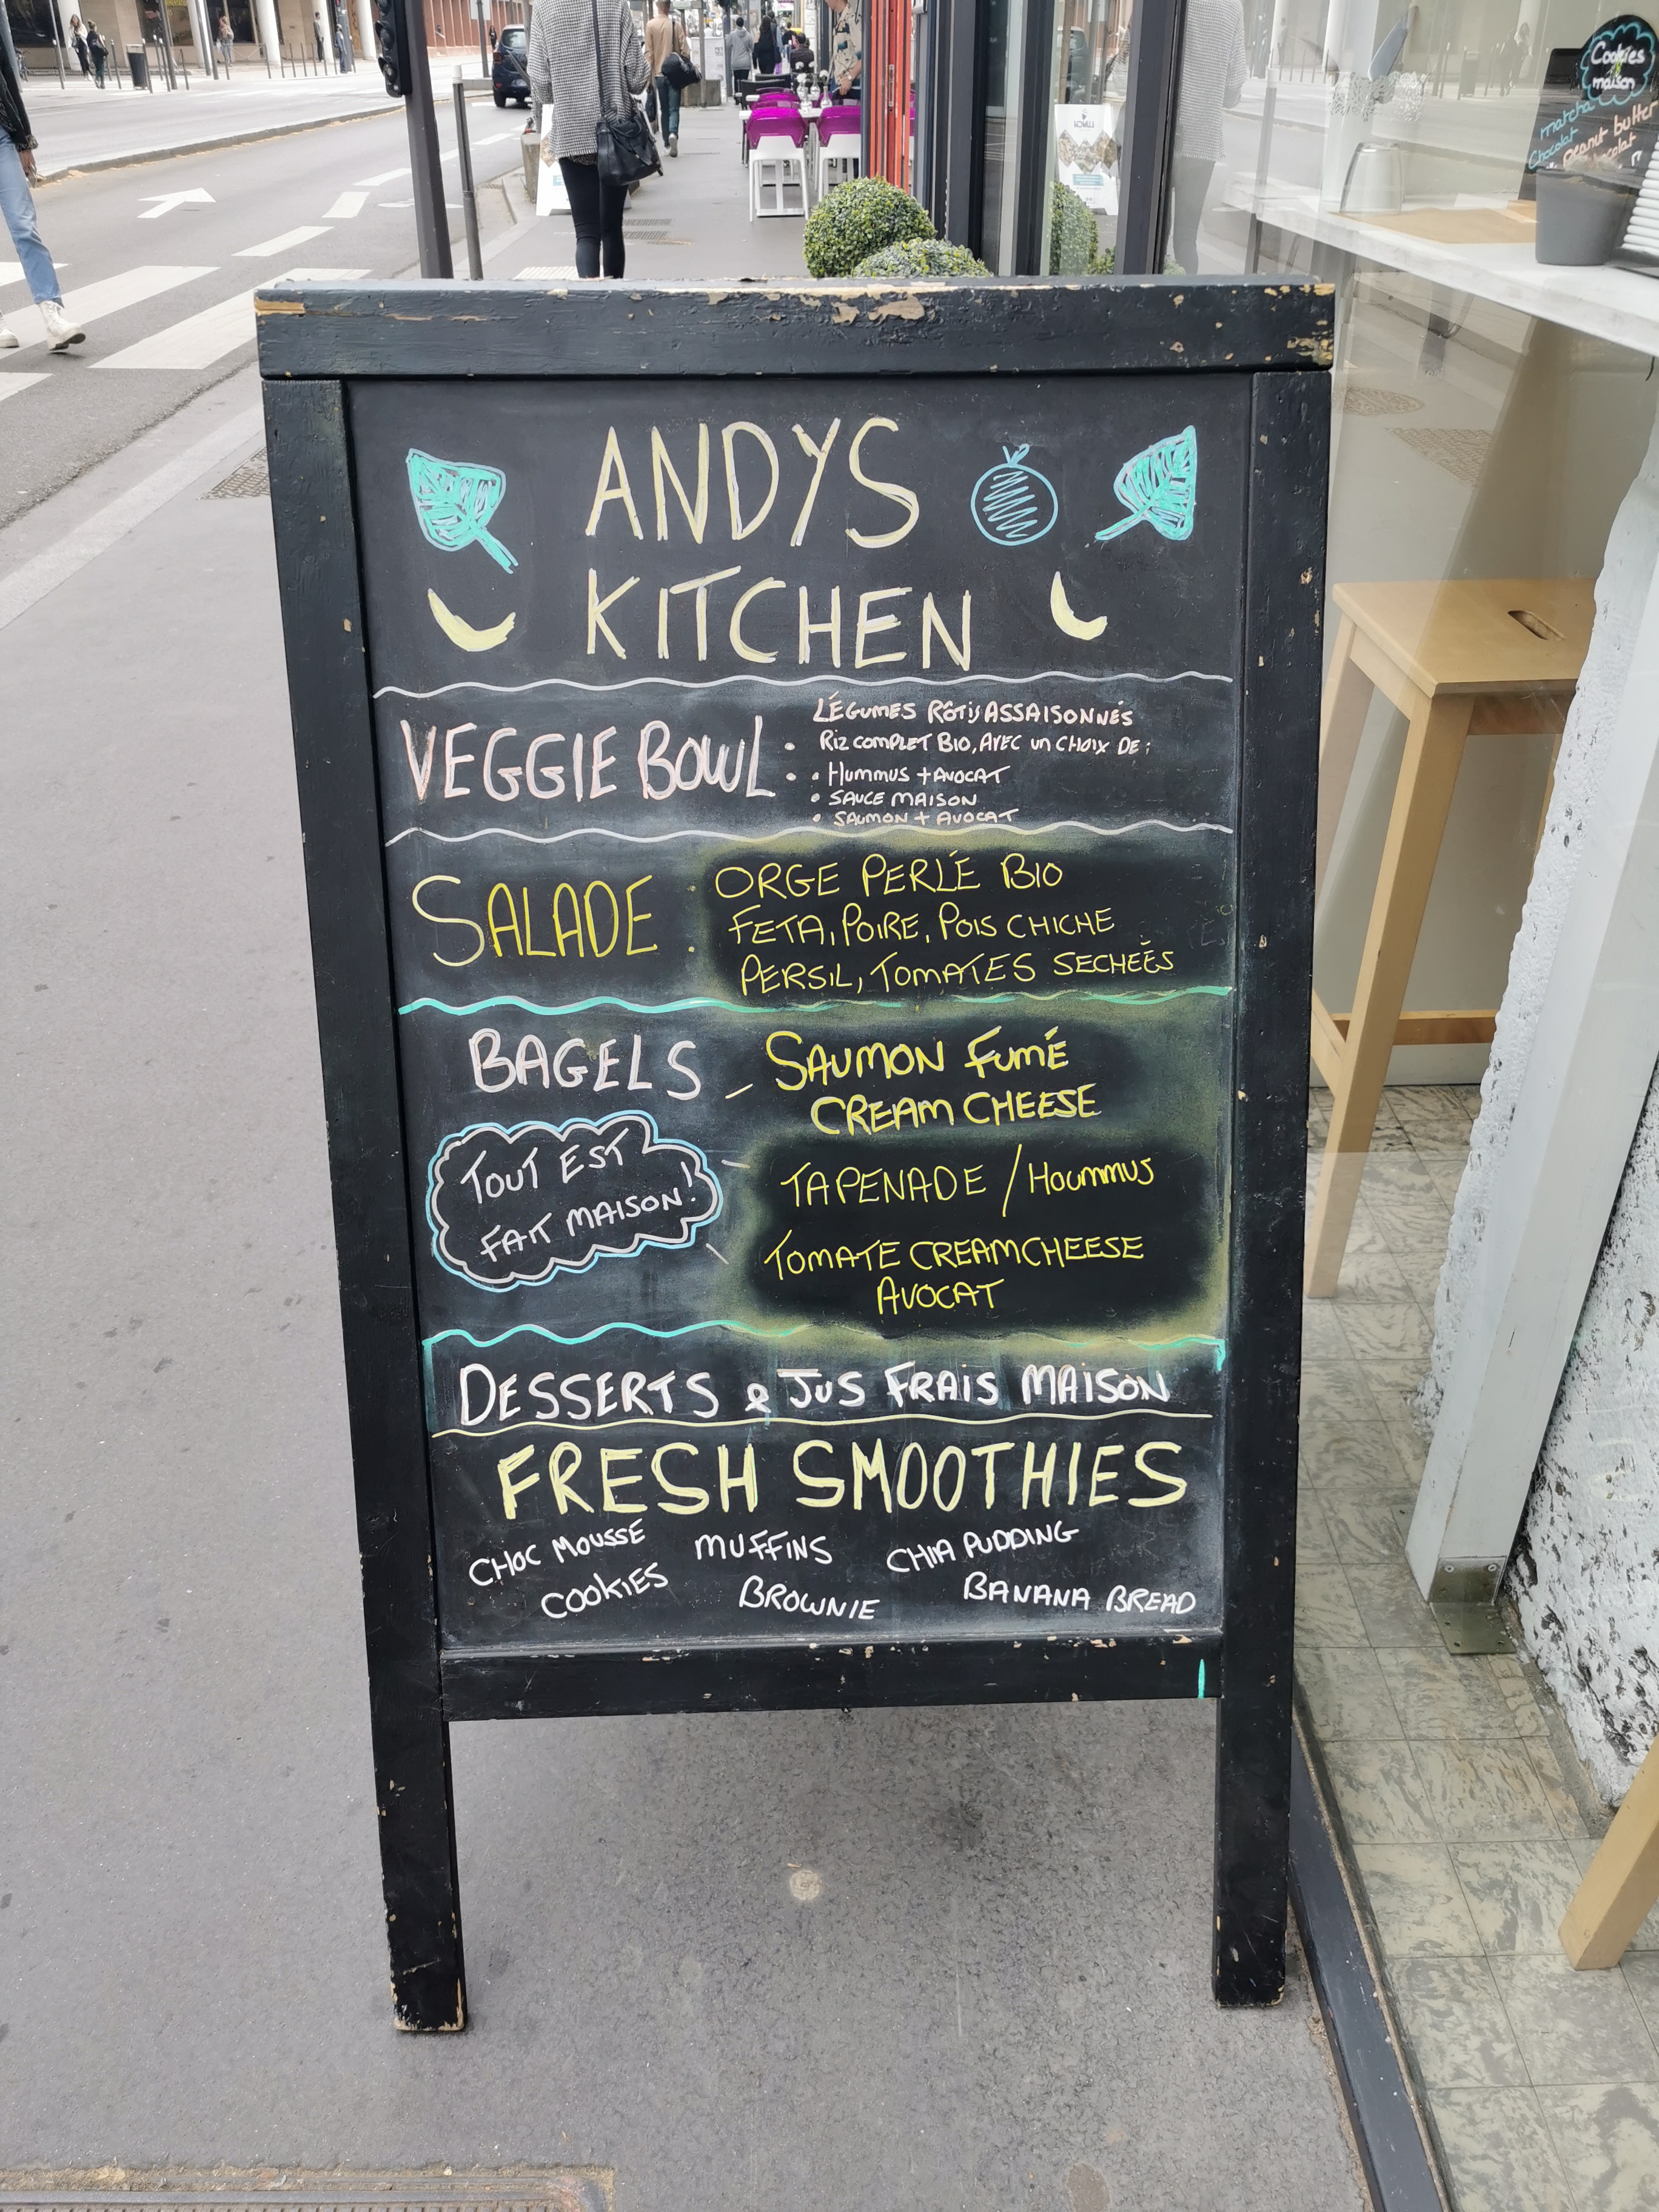 ANDYS
KITCHEN
VEGGIE BOWL :
LÉGUMES RÔTIS ASSAISONNÉS
RIZ COMPLET BIO, AVEC UN CHOIX DE :
• HUMMUS + AVOCAT
• SAUCE MAISON
• SAUMON + AVOCAT
SALADE :
ORGE PERLÉ BIO
FETA, POIRE, POIS CHICHE
PERSIL, TOMATES SECHEÉS
BAGELS
SAUMON FUMÉ
CREAM CHEESE
TOUT EST
FAIT MAISON!
TAPENADE / HOUMMUS
TOMATE CREAMCHEESE
AVOCAT
DESSERTS & JUS FRAIS MAISON
FRESH SMOOTHIES
CHOC MOUSSE MUFFINS CHIA PUDDING
COOKIES BROWNIE BANANA BREAD
Cookies
maison
matcha
Chocolat
peanut butter